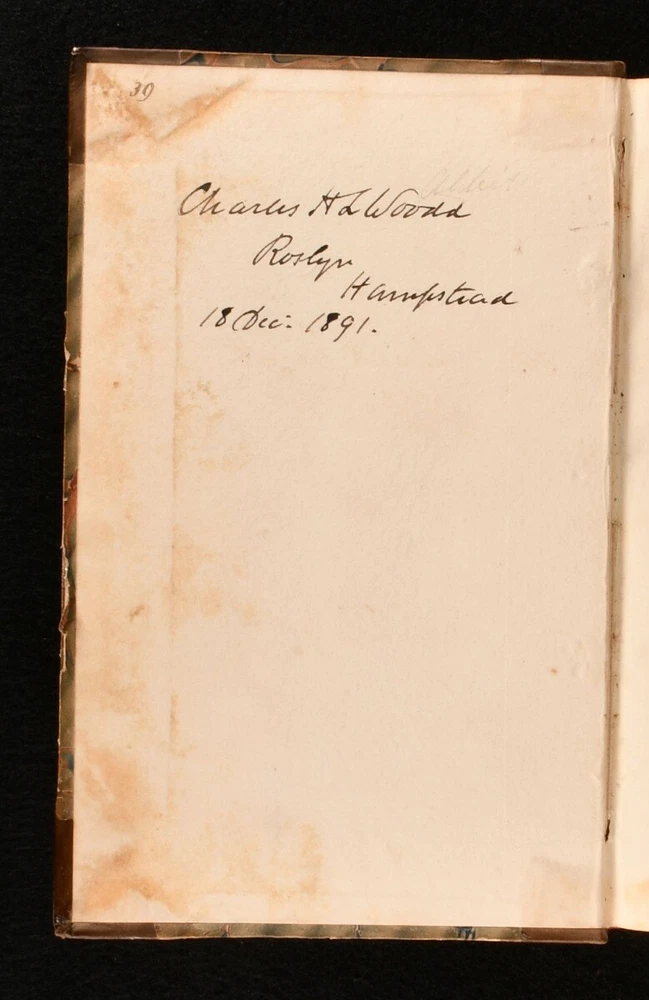 39
Charles H L Woodd
Roslyn
Hampstead
18 Dec: 1891.